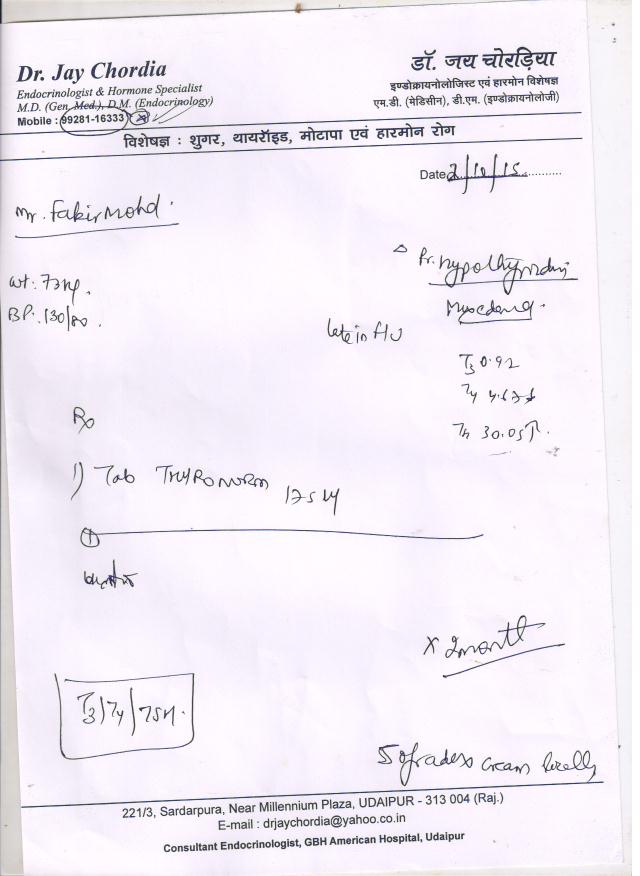 Dr. Jay Chordia
Endocrinologist & Hormone Specialist
M.D. (Gen. Med.), D.M. (Endocrinology)
Mobile : 99281-16333
डॉ. जय चोरड़िया
इण्डोक्रायनोलोजिस्ट एवं हारमोन विशेषज्ञ
एम.डी. (मेडिसीन), डी.एम. (इण्डोक्रायनोलोजी)
विशेषज्ञ : शुगर, थायरॉइड, मोटापा एवं हारमोन रोग
Date 2/10/15
Mr. Fakir Mohd.
Δ Pr. Hypothyroidism
Myxedema.
wt: 73kg.
BP: 130/80.
late in f/u
T3 0.92
T4 4.67↓
30.05↑.
Rx
1) Tab THYRONORM 175
①
x 2month
T3/T4/TSH.
Sofradex cream locally
221/3, Sardarpura, Near Millennium Plaza, UDAIPUR - 313 004 (Raj.)
E-mail : drjaychordia@yahoo.co.in
Consultant Endocrinologist, GBH American Hospital, Udaipur